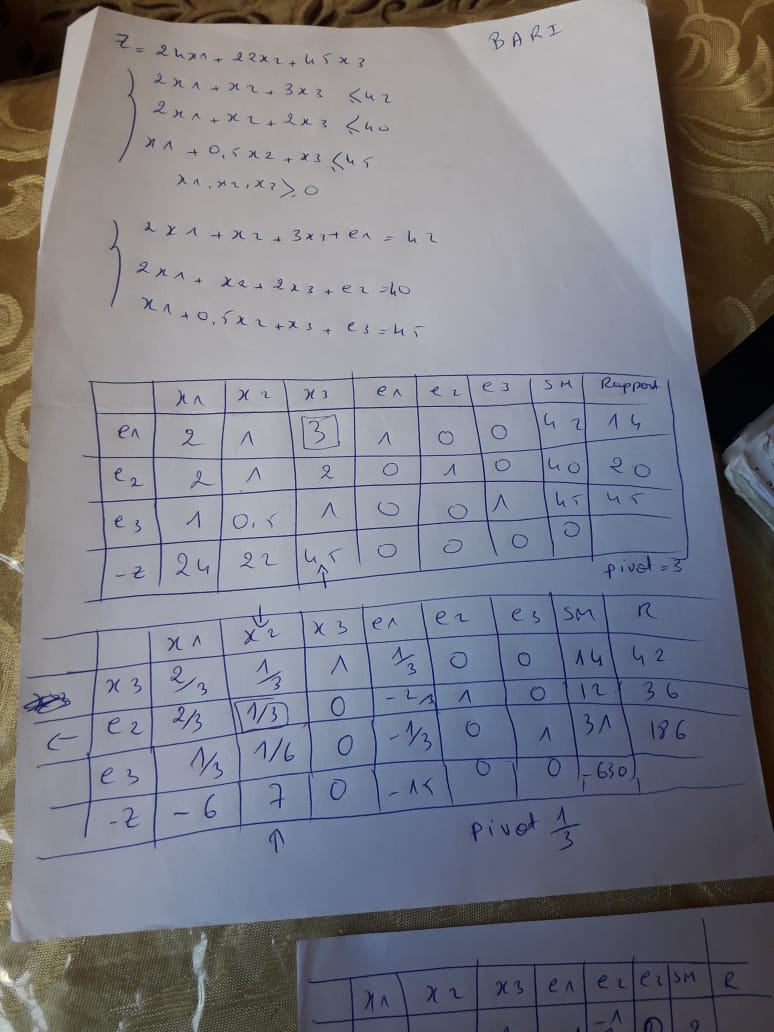 BARI
Z = 24x1 + 22x2 + 45x3
2x1 + x2 + 3x3 ≤ 42
2x1 + x2 + 2x3 ≤ 40
x1 + 0,5x2 + x3 ≤ 45
x1, x2, x2 ≥ 0
2x1 + x2 + 3x3 + e1 = 42
2x1 + x2 + 2x3 + e2 = 40
x1 + 0,5x2 + x3 + e3 = 45
x1 x2 x3 e1 e2 e3 SM Rapport
e1 2 1 3 1 0 0 42 14
e2 2 1 2 0 1 0 40 20
e3 1 0,5 1 0 0 1 45 45
-Z 24 22 45 0 0 0 0
pivot = 3
x1 x2 x3 e1 e2 e3 SM R
x3 2/3 1/3 1 1/3 0 0 14 42
← e2 2/3 1/3 0 -2/3 1 0 12 36
e3 1/3 1/6 0 -1/3 0 1 31 186
-Z -6 7 0 -15 0 0 -630
pivot 1/3
x1 x2 x3 e1 e2 e3 SM R